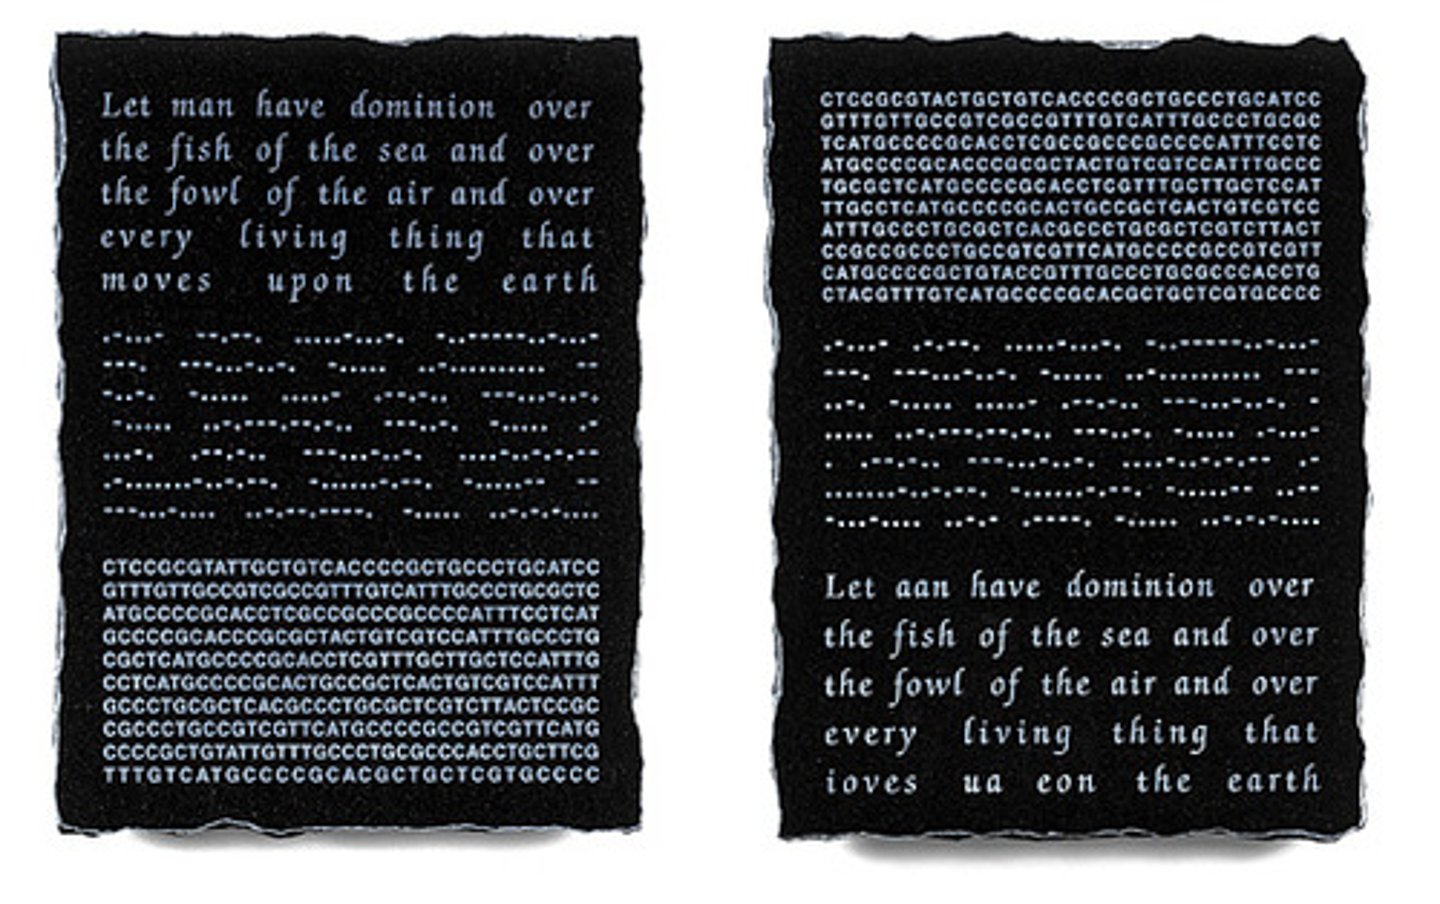 Let man have dominion over
the fish of the sea and over
the fowl of the air and over
every living thing that
moves upon the earth
CTCCGCGTATTGCTGTCACCCCGCTGCCCTGCATCC
GTTTGTTGCCGTCGCCGTTTGTCATTTGCCCTGCGCTC
ATGCCCCGCACCTCGCCGCCCGCCCCATTTCCTCAT
GCCCCGCACCCGCGCTACTGTCGTCCATTTGCCCTG
CGCTCATGCCCCGCACCTCGTTTGCTTGCTCCATTTG
CCTCATGCCCCGCACTGCCGCTCACTGTCGTCCATTT
GCCCTGCGCTCACGCCCTGCGCTCGTCTTACTCCGC
CGCCCTGCCGTCGTTCATGCCCCGCCGTCGTTCATG
CCCCGCTGTATTGTTTGCCCTGCGCCCACCTGCTTCG
TTTGTCATGCCCCGCACGCTGCTCGTGCCCC
CTCCGCGTACTGCTGTCACCCCGCTGCCCTGCATCC
GTTTGTTGCCGTCGCCGTTTGTCATTTGCCCTGCGC
TCATGCCCCGCACCTCGCCGCCCGCCCCATTTCCTC
ATGCCCCGCACCCGCGCTACTGTCGTCCATTTGCCC
TGCGCTCATGCCCCGCACCTCGTTTGCTTGCTCCAT
TTGCCTCATGCCCCGCACTGCCGCTCACTGTCGTCC
ATTTGCCCTGCGCTCACGCCCTGCGCTCGTCTTACT
CCGCCGCCCTGCCGTCGTTCATGCCCCGCCGTCGTT
CATGCCCCGCTGTACCGTTTGCCCTGCGCCCACCTG
CTACGTTTGTCATGCCCCGCACGCTGCTCGTGCCCC
Let aan have dominion over
the fish of the sea and over
the fowl of the air and over
every living thing that
ioves ua eon the earth